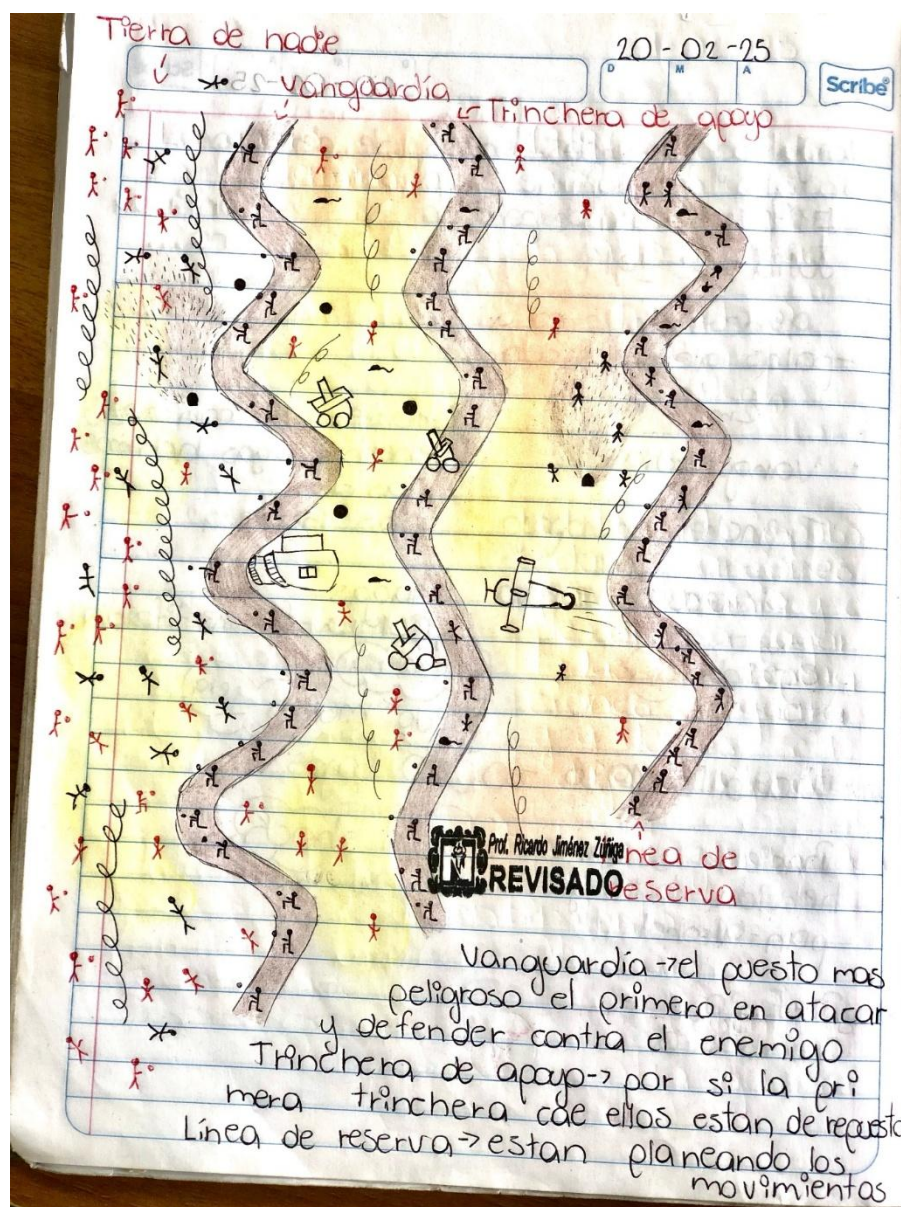 Tierra de nadie
20-02-25
D M A
Scribe
vanguardía
Trinchera de apoyo
Prof. Ricardo Jiménez Zúñiga
REVISADO
nea de
eserva
Vanguardía→el puesto mas
peligroso el primero en atacar
y defender contra el enemigo
Trinchera de apoyo→por si la pri
mera trinchera cae ellos estan de repuesto
Línea de reserva→estan planeando los
movimientos